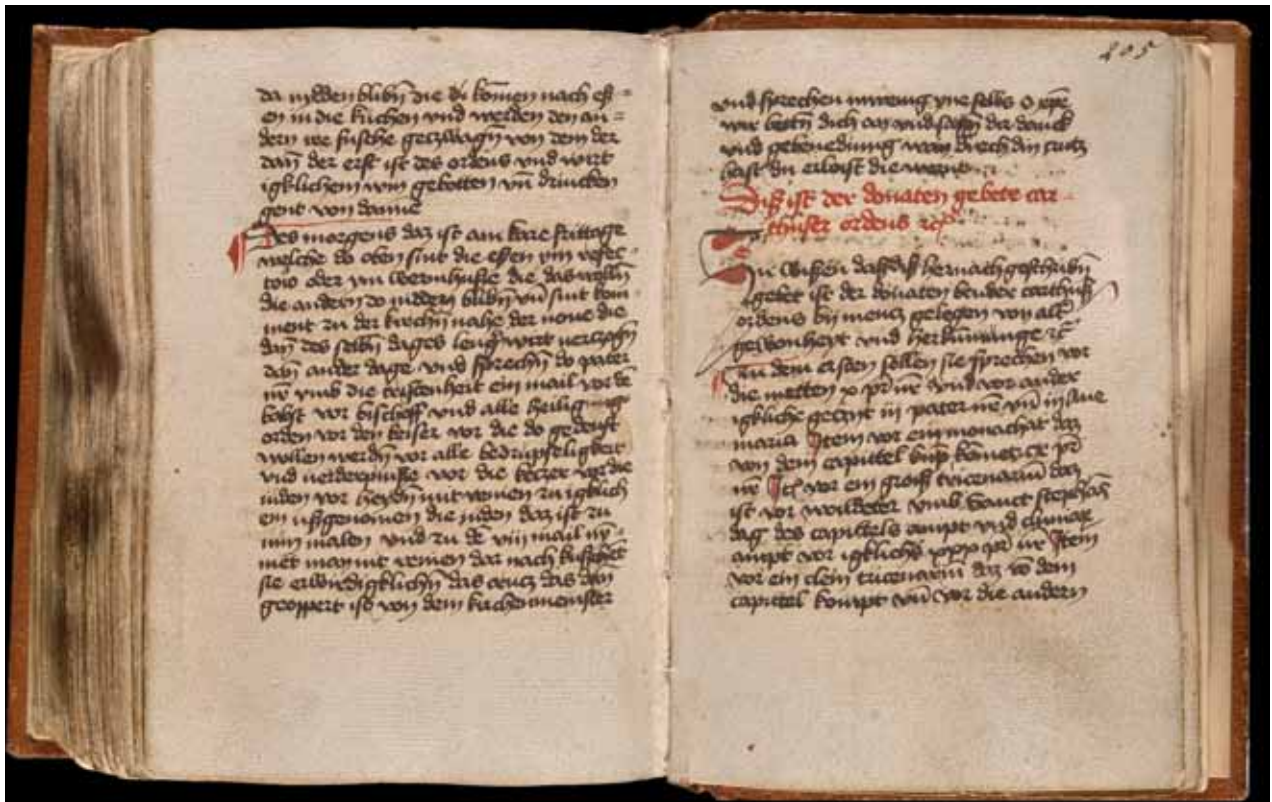 da nidden blibn̄ die di komen nach eſſ-
en in die kuchen vnd werden den an-
dern ire fusche getzwagn̄ von dem der
dan̄ der erſt iſt des ordens vnd wirt
igklichem win gebotten vn̄ drincken
gent von danne
Des morgens daz iſt am kare frittage
welche do oben ſint die eſſen ym refec-
torio oder ym die das wolln̄
die andern do nidden blibn̄ vn̄ ſint kom-
ment zu der kirchn̄ nahe der none die
dan̄ des ſelbn̄ dages lenḡ wirt vertzogn̄
dan̄ ander dage vnd ſprechn̄ do pater
nr̄ vmb die criſtenheit ein mail vor dē
babſt vor biſchoff vnd alle heilig
orden vor den keiſer vor die do gedeufft
wollen werdn̄ vor alle bedrupſeligkeit
vnd verderpniſſe vor die ketzer vor die
iuden vor heydn̄ mit venien zu igklich
em uſzgenomen die juden daz iſt zu
nün malen vnd zu dē viij mail ny-
met man nit venien dar nach kuſſet
ſie erwirdigklichn̄ das crutz das dan
geoppert iſt von dem kirchenmeinſter
205
vnd ſprechen inwenig yne ſelbs o xp̄e
wir betn̄ dich an vnd ſagn̄ dir danck
vnd gebenediung wan̄ durch din crutz
haſt du erloiſt die
Diſz iſt der donaten gebete car-
thuſer ordens ꝛc̄
Zu wiſſen daſz diſz hernach geſchribn̄
gebet iſt der donaten bruder carthuſz
ordens by mentz gelegen von alt̄
gewonheyt vnd herkummunge ꝛc̄
Zu dem erſten ſollen ſie ſprechen vor
die metten x pr̄ nr̄ vnd vor ander
igkliche getzyt iij pater nr̄ vn̄ iij aue
maria Item vor ein monachat daz
von dem capittel kūpt pr̄
nr̄ Itē vor ein groiſſ tricenariū daz
iſt vor woildeter vmb ſanct ſtephās
dag des capittels ampt vnd
ampt vor igklichs xxx pr̄ nr̄ Item
vor ein clein tricenariū daz vō dem
capittel kompt vn̄ vor die andern